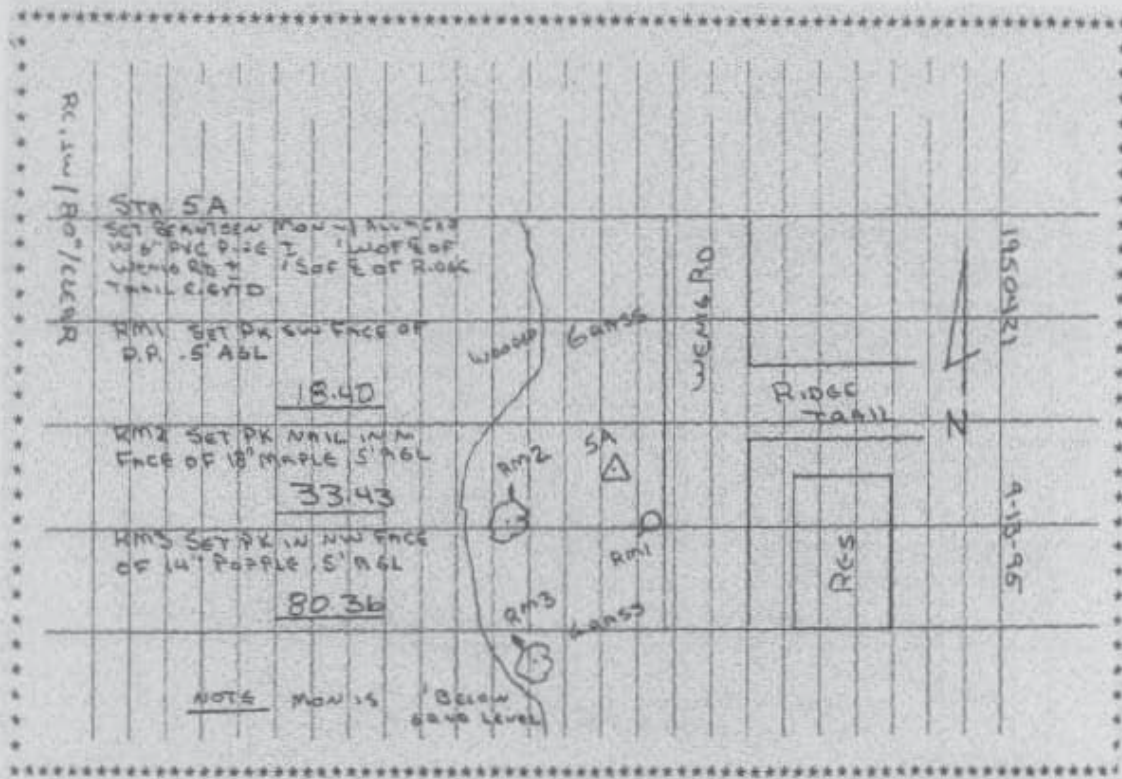 RC, SW / 80°/CLEAR
STA 5A
SET MON
6" PVC
WEMS RD ± ' S OF ℄ OF RIDGE
TRAIL
RM1 SET PK SW FACE OF
P.P. .5' AGL
18.40
RM2 SET PK NAIL IN N
FACE OF 18" MAPLE .5' AGL
33.43
RM3 SET PK IN NW FACE
OF 14" POPPLE .5' AGL
80.36
NOTE MON IS ' BELOW
LEVEL
WOODED
GRASS
WEMS RD
RIDGE
TRAIL
N
5A
RM2
RM1
RM3
GRASS
RES
1950421
9-13-95